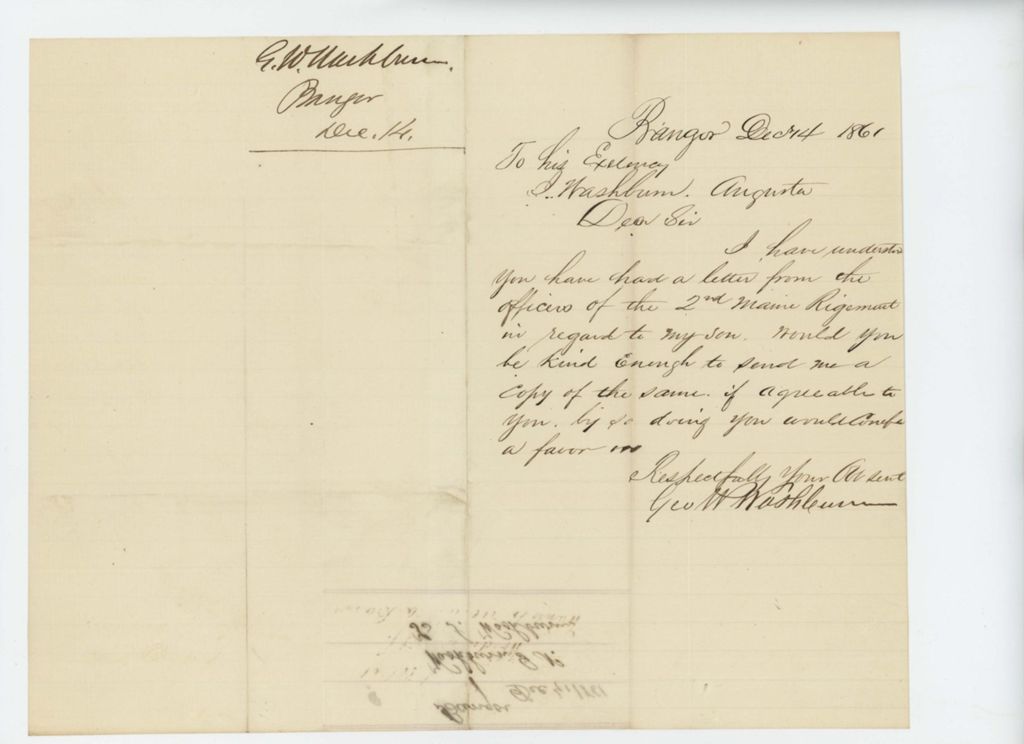 G. W. Washburn.
Bangor
Dec. 14.
Bangor Dec 14 1861
To his Exelency
I. Washburn. Augusta
Dear Sir
I have understo
you have had a letter from the
officers of the 2nd Maine Rigement
in regard to my son. Would you
be kind Enough to send me a
Copy of the same. if agreeable to
you. by so doing you would Confe
a favor
Respectfully Your Ob sevt
Geo W Washburn